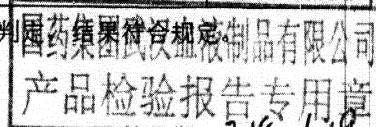 判定，结果符合规定。
国药集团武汉血液制品有限公司
产品检验报告专用章